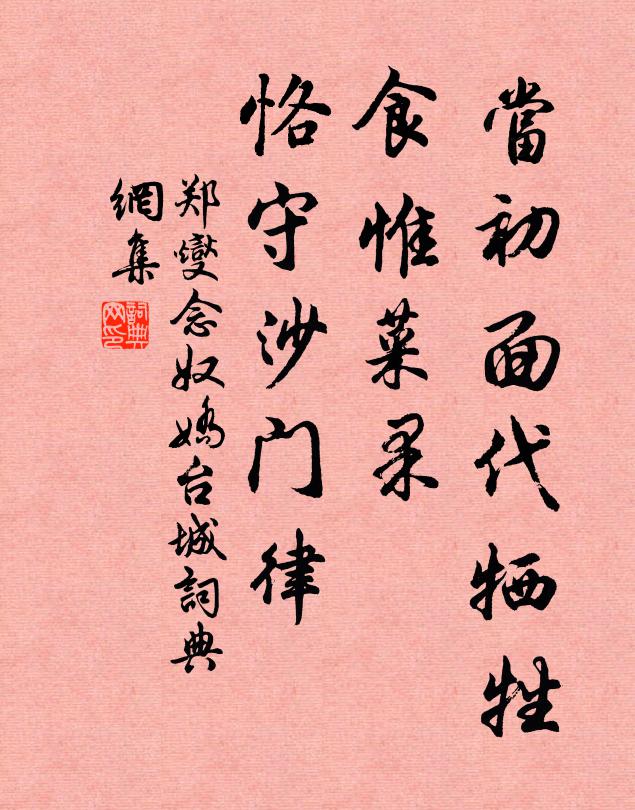 當初面代牺牲
食惟菜果
恪守沙门律
郑燮念奴嬌台城詞典
網集
詞典网印